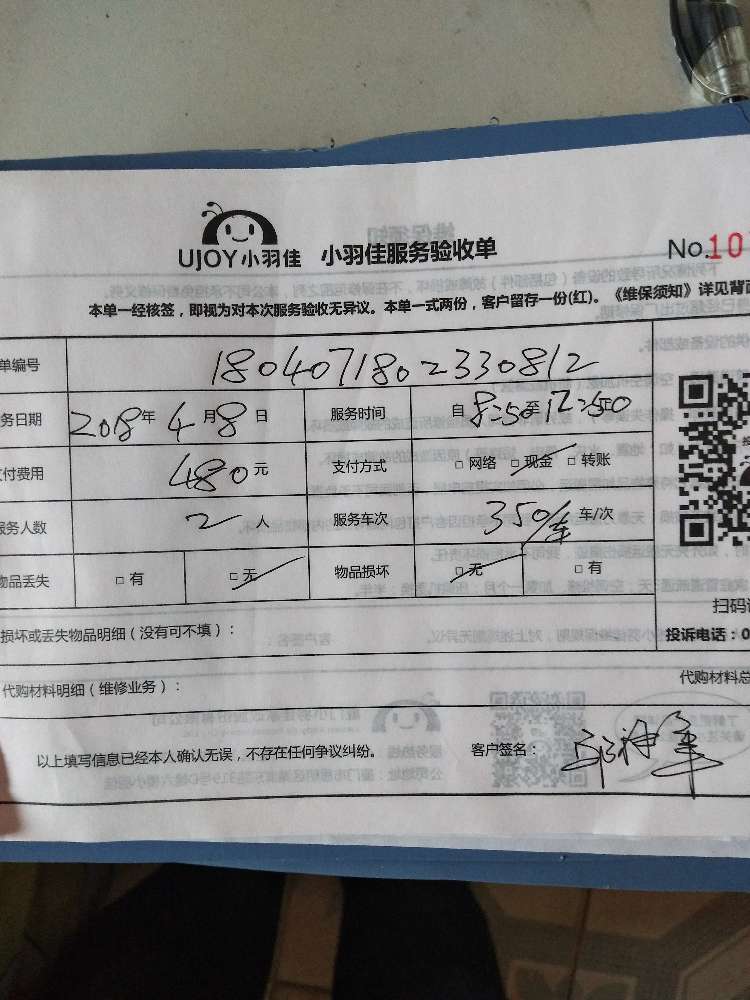 UJOY小羽佳 小羽佳服务验收单 No.10
本单一经核签，即视为对本次服务验收无异议。本单一式两份，客户留存一份(红)。《维保须知》详见背面
单编号 1804071802330812
务日期 2018年 4月8日 服务时间 自8:50至12:50
付费用 480元 支付方式 □网络 □现金 □转账
服务人数 2人 服务车次 350/车 车/次
物品丢失 □有 □无 物品损坏 □无 □有
扫码
损坏或丢失物品明细（没有可不填）： 投诉电话：0
代购材料明细（维修业务）： 代购材料总
以上填写信息已经本人确认无误，不存在任何争议纠纷。 客户签名：